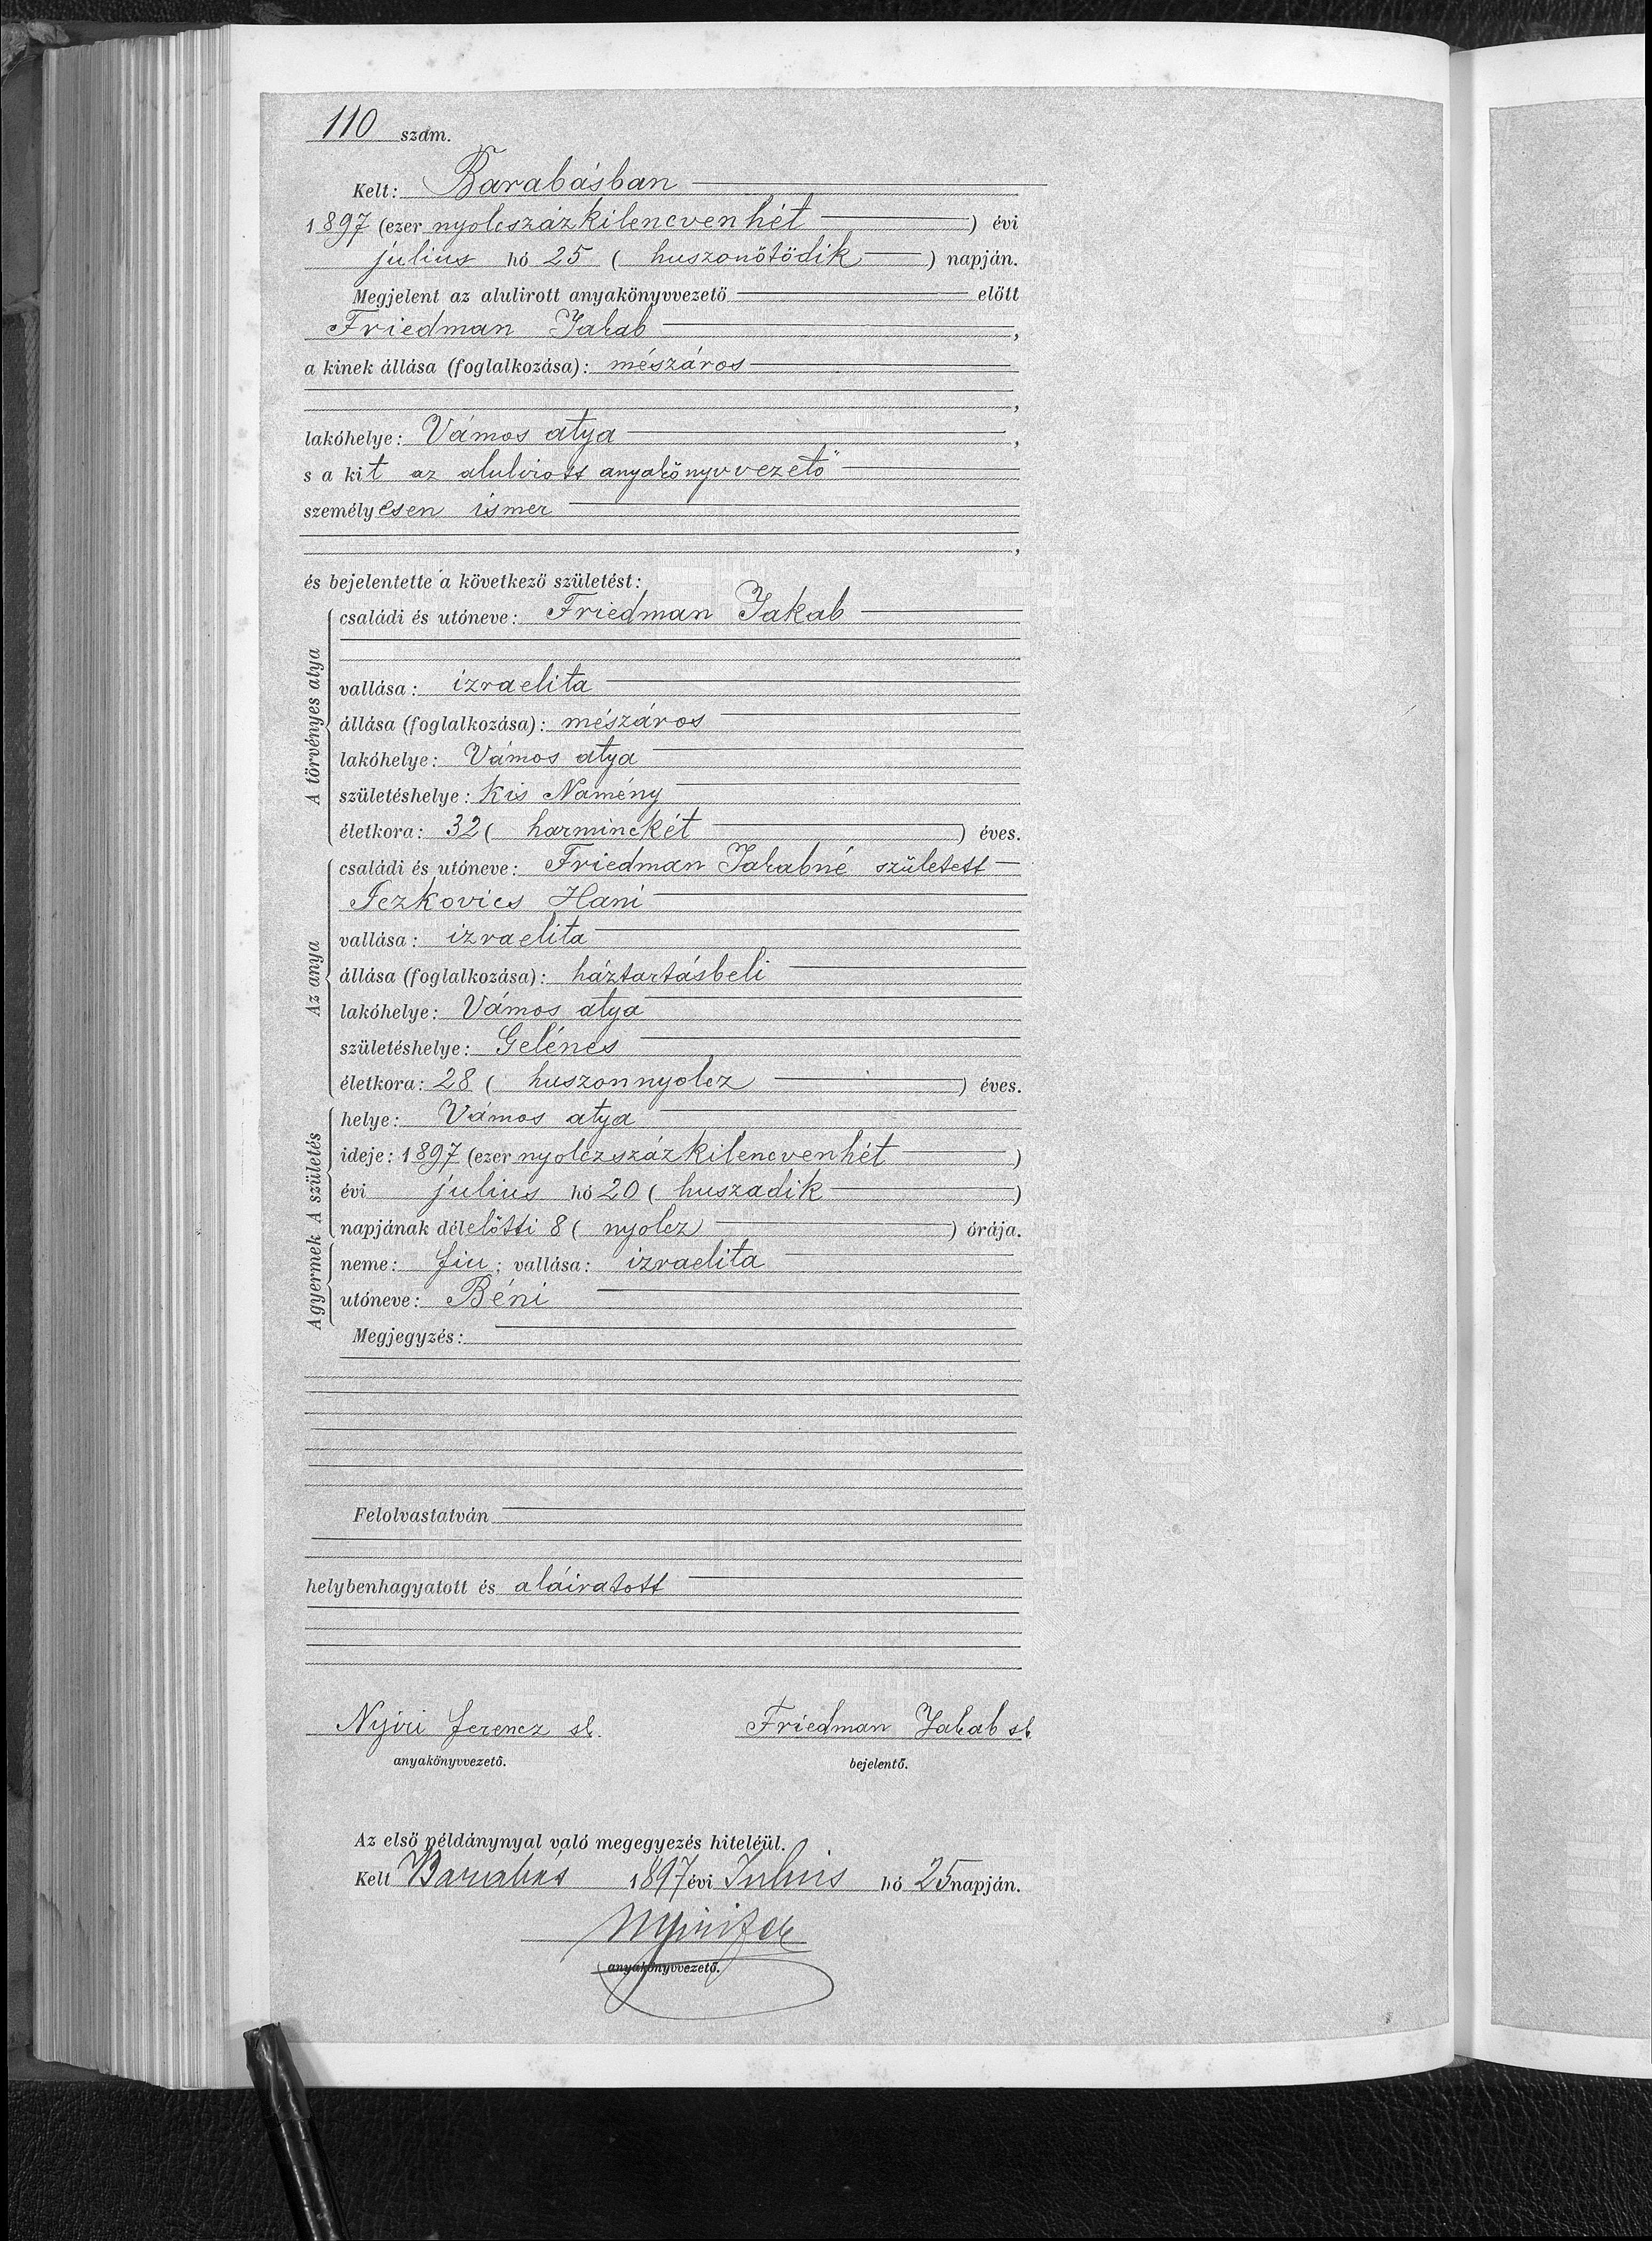 110 szám.
Kelt: Barabásban
1897 (ezer nyolcszázkilencvenhét ) évi
július hó 25 ( huszonötödik ) napján.
Megjelent az alulirott anyakönyvvezető előtt
Friedman Jakab ,
a kinek állása (foglalkozása): mészáros
,
lakóhelye: Vámos atya ,
s a kit az alulirott anyakönyvvezető
személyesen ismer
,
és bejelentette a következő születést:
A törvényes atya
családi és utóneve: Friedman Jakab
vallása: izraelita
állása (foglalkozása): mészáros
lakóhelye: Vámos atya
születéshelye: Kis Namény
életkora: 32 ( harminckét ) éves.
Az anya
családi és utóneve: Friedman Jakabné született
Iczkovics Hani
vallása: izraelita
állása (foglalkozása): háztartásbeli
lakóhelye: Vámos atya
születéshelye: Gelénes
életkora: 28 ( huszonnyolcz ) éves.
A születés
helye: Vámos atya
ideje: 1897 (ezer nyolczszázkilencvenhét )
évi július hó 20 ( huszadik )
napjának délelőtti 8 ( nyolcz ) órája.
A gyermek
neme: fiu; vallása: izraelita
utóneve: Béni
Megjegyzés:
Felolvastatván
helybenhagyatott és aláiratott
Nyiri Ferencz sk. Friedman Jakab sk.
anyakönyvvezető. bejelentő.
Az első példánynyal való megegyezés hiteléül.
Kelt Barabás 1897 évi Julius hó 25 napján.
anyakönyvvezető.